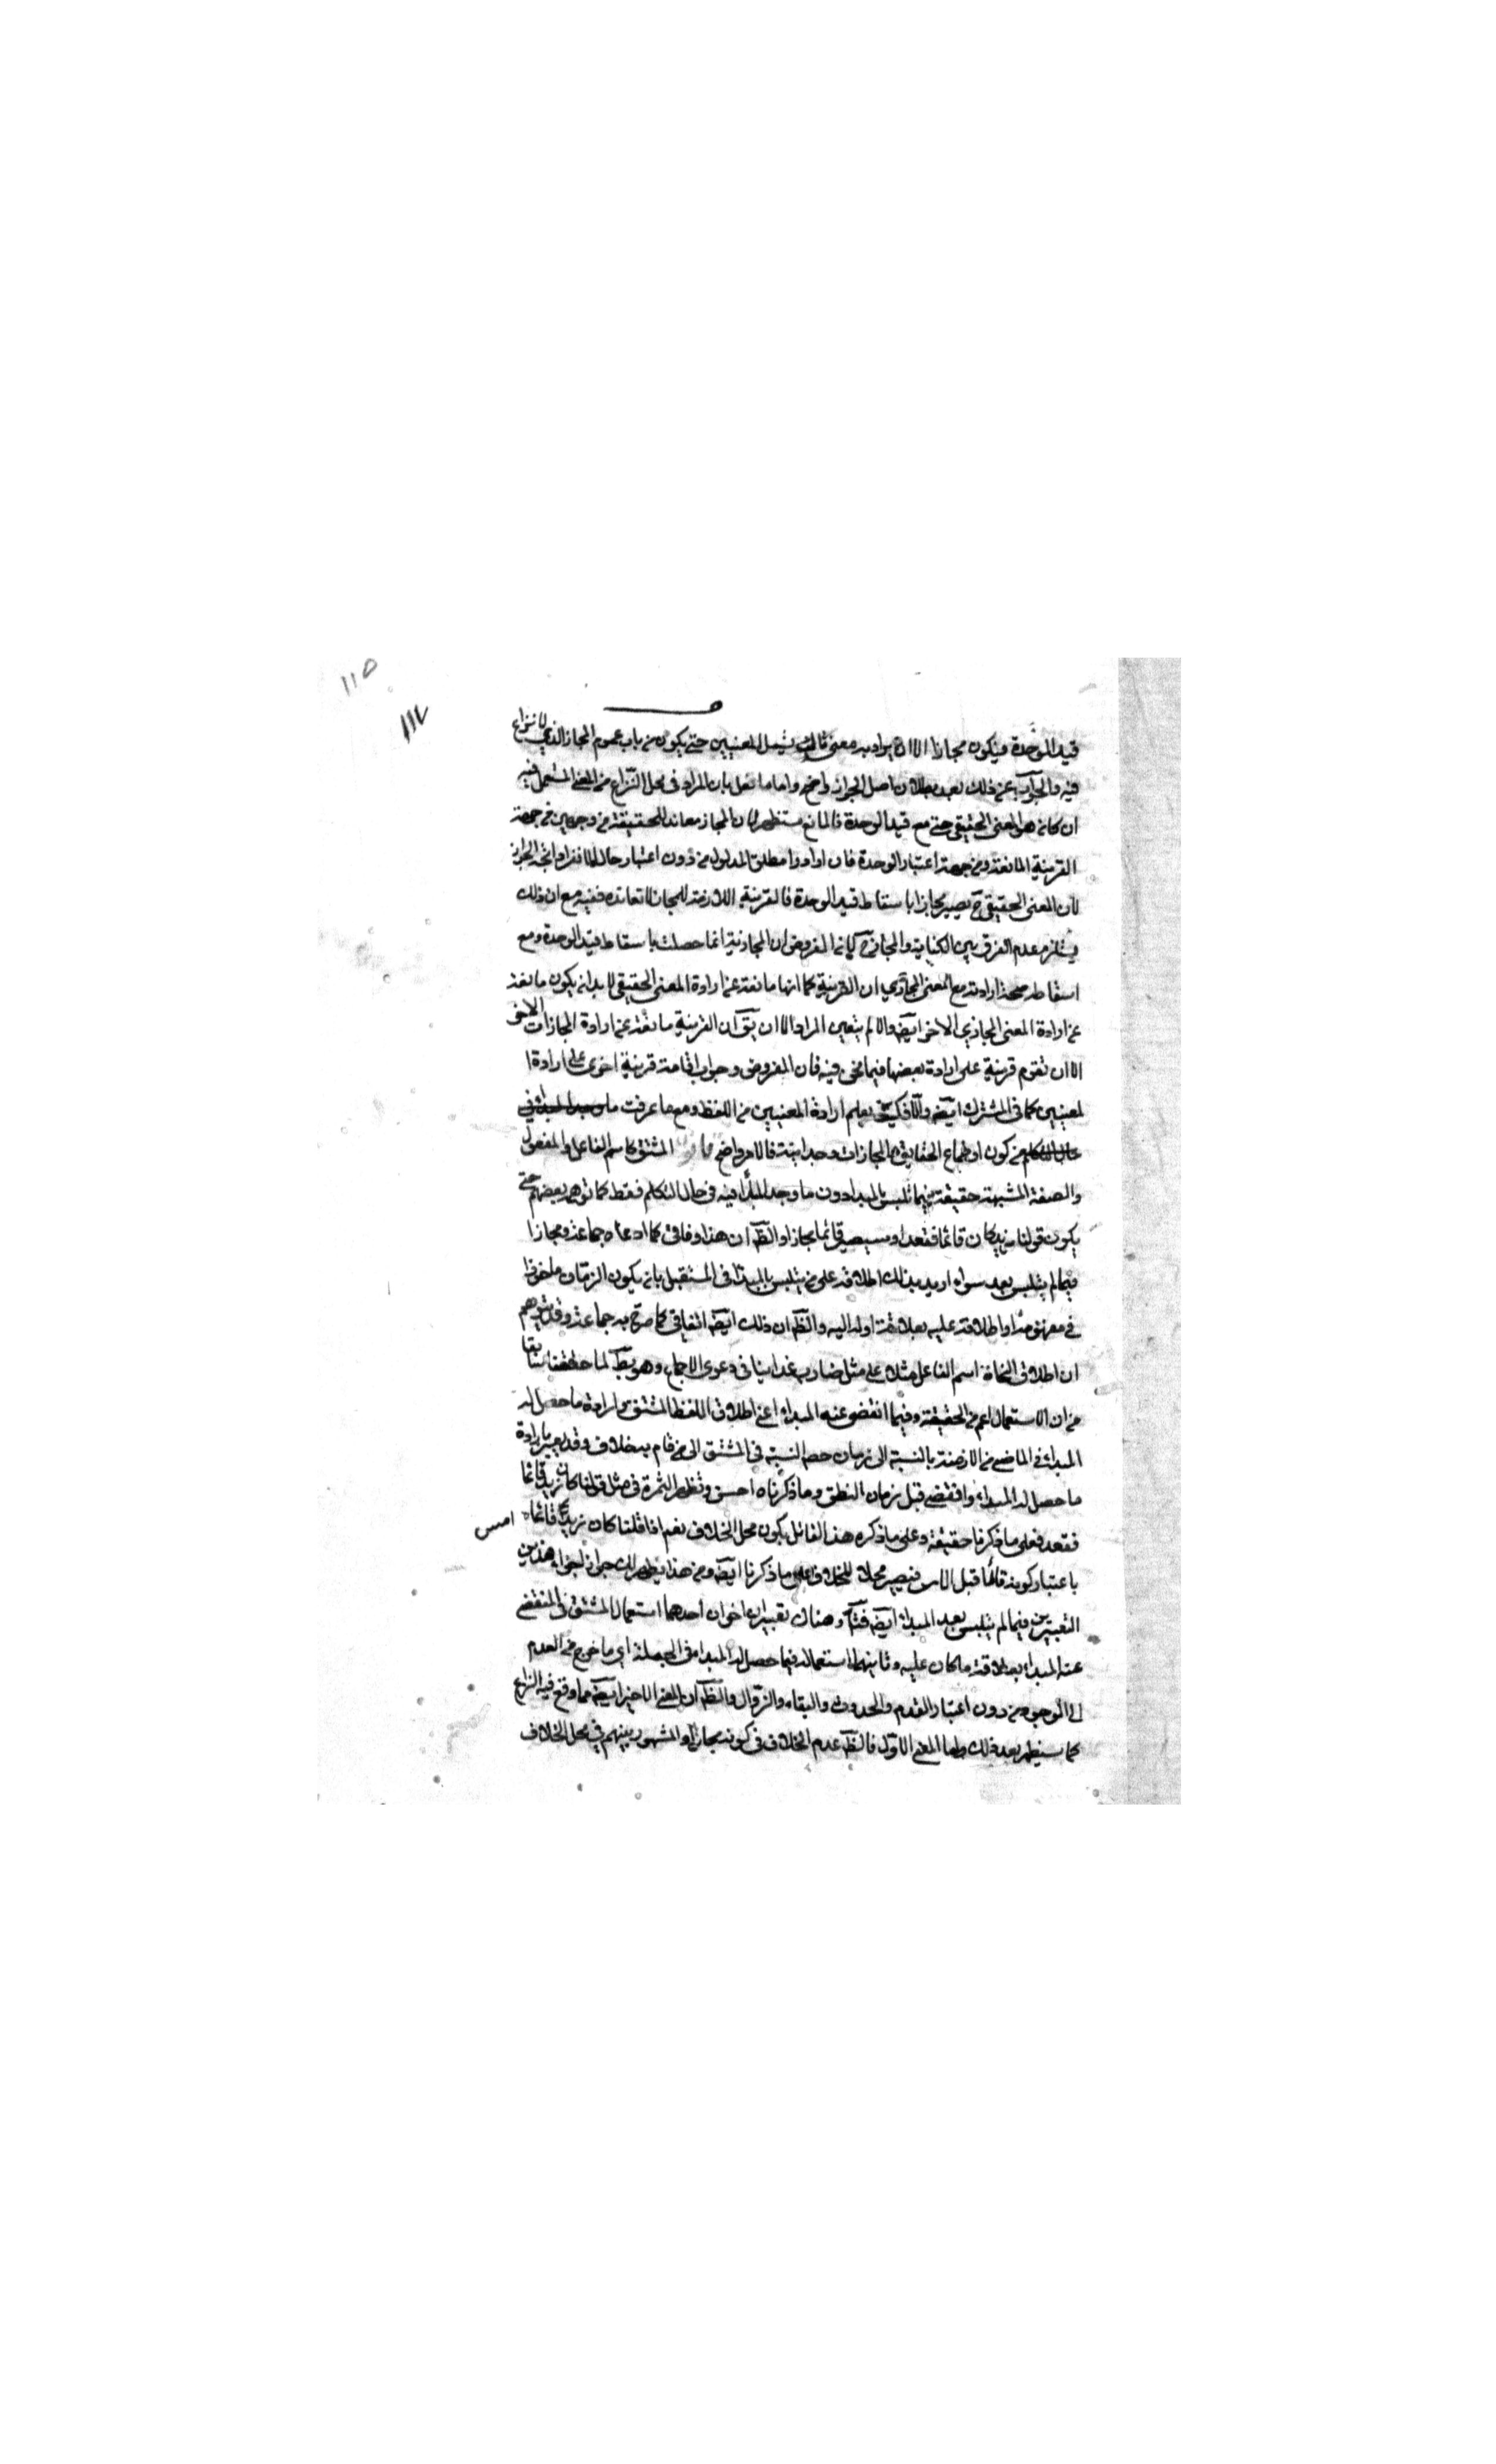 ١١٥
١١٧
قيد الوحدة فيكون مجازا الا ان يراد به معنى ثالث يشمل المعنيين حتى يكون من باب عموم المجاز الذي لا نزاع
فيه والجواب عن ذلك بعد بطلان اصل الجواز واضح واما ما نقل بان المراد في محل النزاع من المعنى المستعمل فيه
ان كان هو المعنى الحقيقي حتى مع قيد الوحدة فالمانع مستظهر لان المجاز معاند للحقيقة من وجهين من جهة
القرينة المانعة ومن جهة اعتبار الوحدة فان ارادوا مطلق المدلول من دون اعتبار حال الانفراد اتجه الجواز
لان المعنى الحقيقي ح يصير مجازا باسقاط قيد الوحدة فالقرينة اللازمة للمجاز لا تعانده ففيه مع ان ذلك
يستلزم عدم الفرق بين الكناية والمجاز ح لان المفروض ان المجازية انما حصلت باسقاط قيد الوحدة ومع
اسقاطه صحة ارادته مع المعنى المجازي ان القرينة كما انها مانعة عن ارادة المعنى الحقيقي لابد ان يكون مانعة
عن ارادة المعنى المجازي الاخر ايضه والا لم يتعين المراد الا ان يقآ ان القرينة مانعة عن ارادة المجازات الاخر
الا ان تقوم قرينة على ارادة بعضها فيما نحن فيه فان المفروض وجوب اقامة قرينة اخرى على ارادة ا
لمعنيين كما في المشترك ايضه والا فكيف يعلم ارادة المعنيين من اللفظ ومع ما عرفت
من كون اوضاع الحقايق والمجازات وحدانية فالامر واضح قانون المشتق كاسم الفاعل والمفعول
والصفة المشبهة حقيقة فيما تلبس بالمبدا دون ما وجد المبدأ فيه في حال التكلم فقط كما توهم بعضهم حتى
يكون قولنا زيد كان قائما فقعد او سيصير قائما مجازا والظه ان هذا وفاقي كما ادعاه جماعة ومجازا
فيما لم يتلبس بعد سواء اريد بذلك اطلاقه على من يتلبس بالمبدا في المستقبل بان يكون الزمان ماخوذا
في مفهومه او اطلاقه عليه بعلاقة اوله اليه والظه ان ذلك ايضه اتفاقي كما صرح به جماعة وقد يتوهم
ان اطلاق النحاة اسم الفاعل مثلا على مثل ضارب غدا ينافي دعوى الاجماع وهو بط لما حققنا سابقا
من ان الاستعمال اعم من الحقيقة وفيما انقضى عنه المبداء اعني اطلاق اللفظ المشتق وارادة ما حصل له
المبداء في الماضي من الازمنة بالنسبة الى زمان حصول النسبة في المشتق الى من قام به خلاف وقد يعبر بارادة
ما حصل له المبداء وانقضى قبل زمان النطق وما ذكرناه احسن وتظهر الثمرة في مثل قولنا كان زيد قائما
فقعد فعلى ما ذكرنا حقيقة وعلى ما ذكره هذا القائل يكون محل الخلاف نعم اذا قلنا كان زيد قائما امس
باعتبار كونه قائما قبل الامس فيصير محلا للخلاف على ما ذكرنا ايضه ومن هذا يظهر لك جواز اجراء هذين
التعبيرين فيما لم يتلبس بعد المبداء ايضه فتم وهناك تعبيران اخران احدهما استعمال المشتق في المنقضي
عنه المبداء بعلاقة ما كان عليه وثانيهما استعماله فيما حصل له المبدا في الجملة اي ما خرج من العدم
الى الوجود من دون اعتبار القدم والحدوث والبقاء والزوال والظه ان المعنى الاخير ايضه مما وقع فيه النزاع
كما سيظهر بعد ذلك واما المعنى الاول فالظه عدم الخلاف في كونه مجازا والمشهور بينهم في محل الخلاف